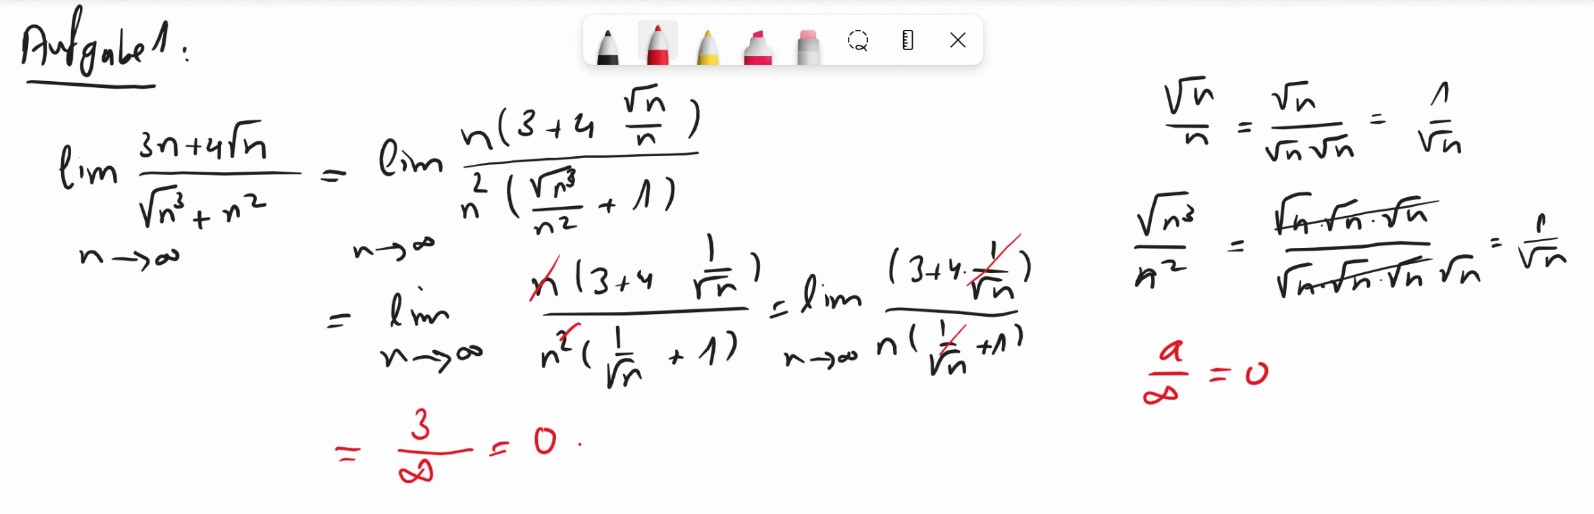 Aufgabe 1:
lim n→∞ (3n+4√n)/(√n³ + n²) = lim n→∞ n(3+4 √n/n)/n²(√n³/n² + 1)
= lim n→∞ n(3+4 1/√n)/n²(1/√n + 1) = lim n→∞ (3+4·1/√n)/n(1/√n +1)
= 3/∞ = 0.
√n/n = √n/√n √n = 1/√n
√n³/n² = √n·√n·√n/√n·√n·√n √n = 1/√n
a/∞ = 0